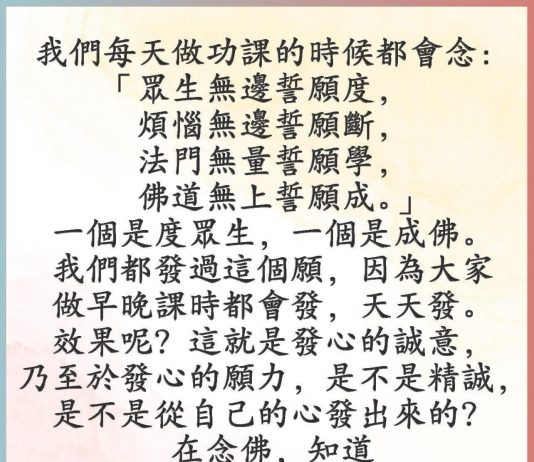 我們每天做功課的時候都會念:
「眾生無邊誓願度，
煩惱無邊誓願斷，
法門無量誓願學，
佛道無上誓願成。」
一個是度眾生，一個是成佛。
我們都發過這個願，因為大家
做早晚課時都會發，天天發。
效果呢？這就是發心的誠意，
乃至於發心的願力，是不是精誠，
是不是從自己的心發出來的？
在念佛，知道